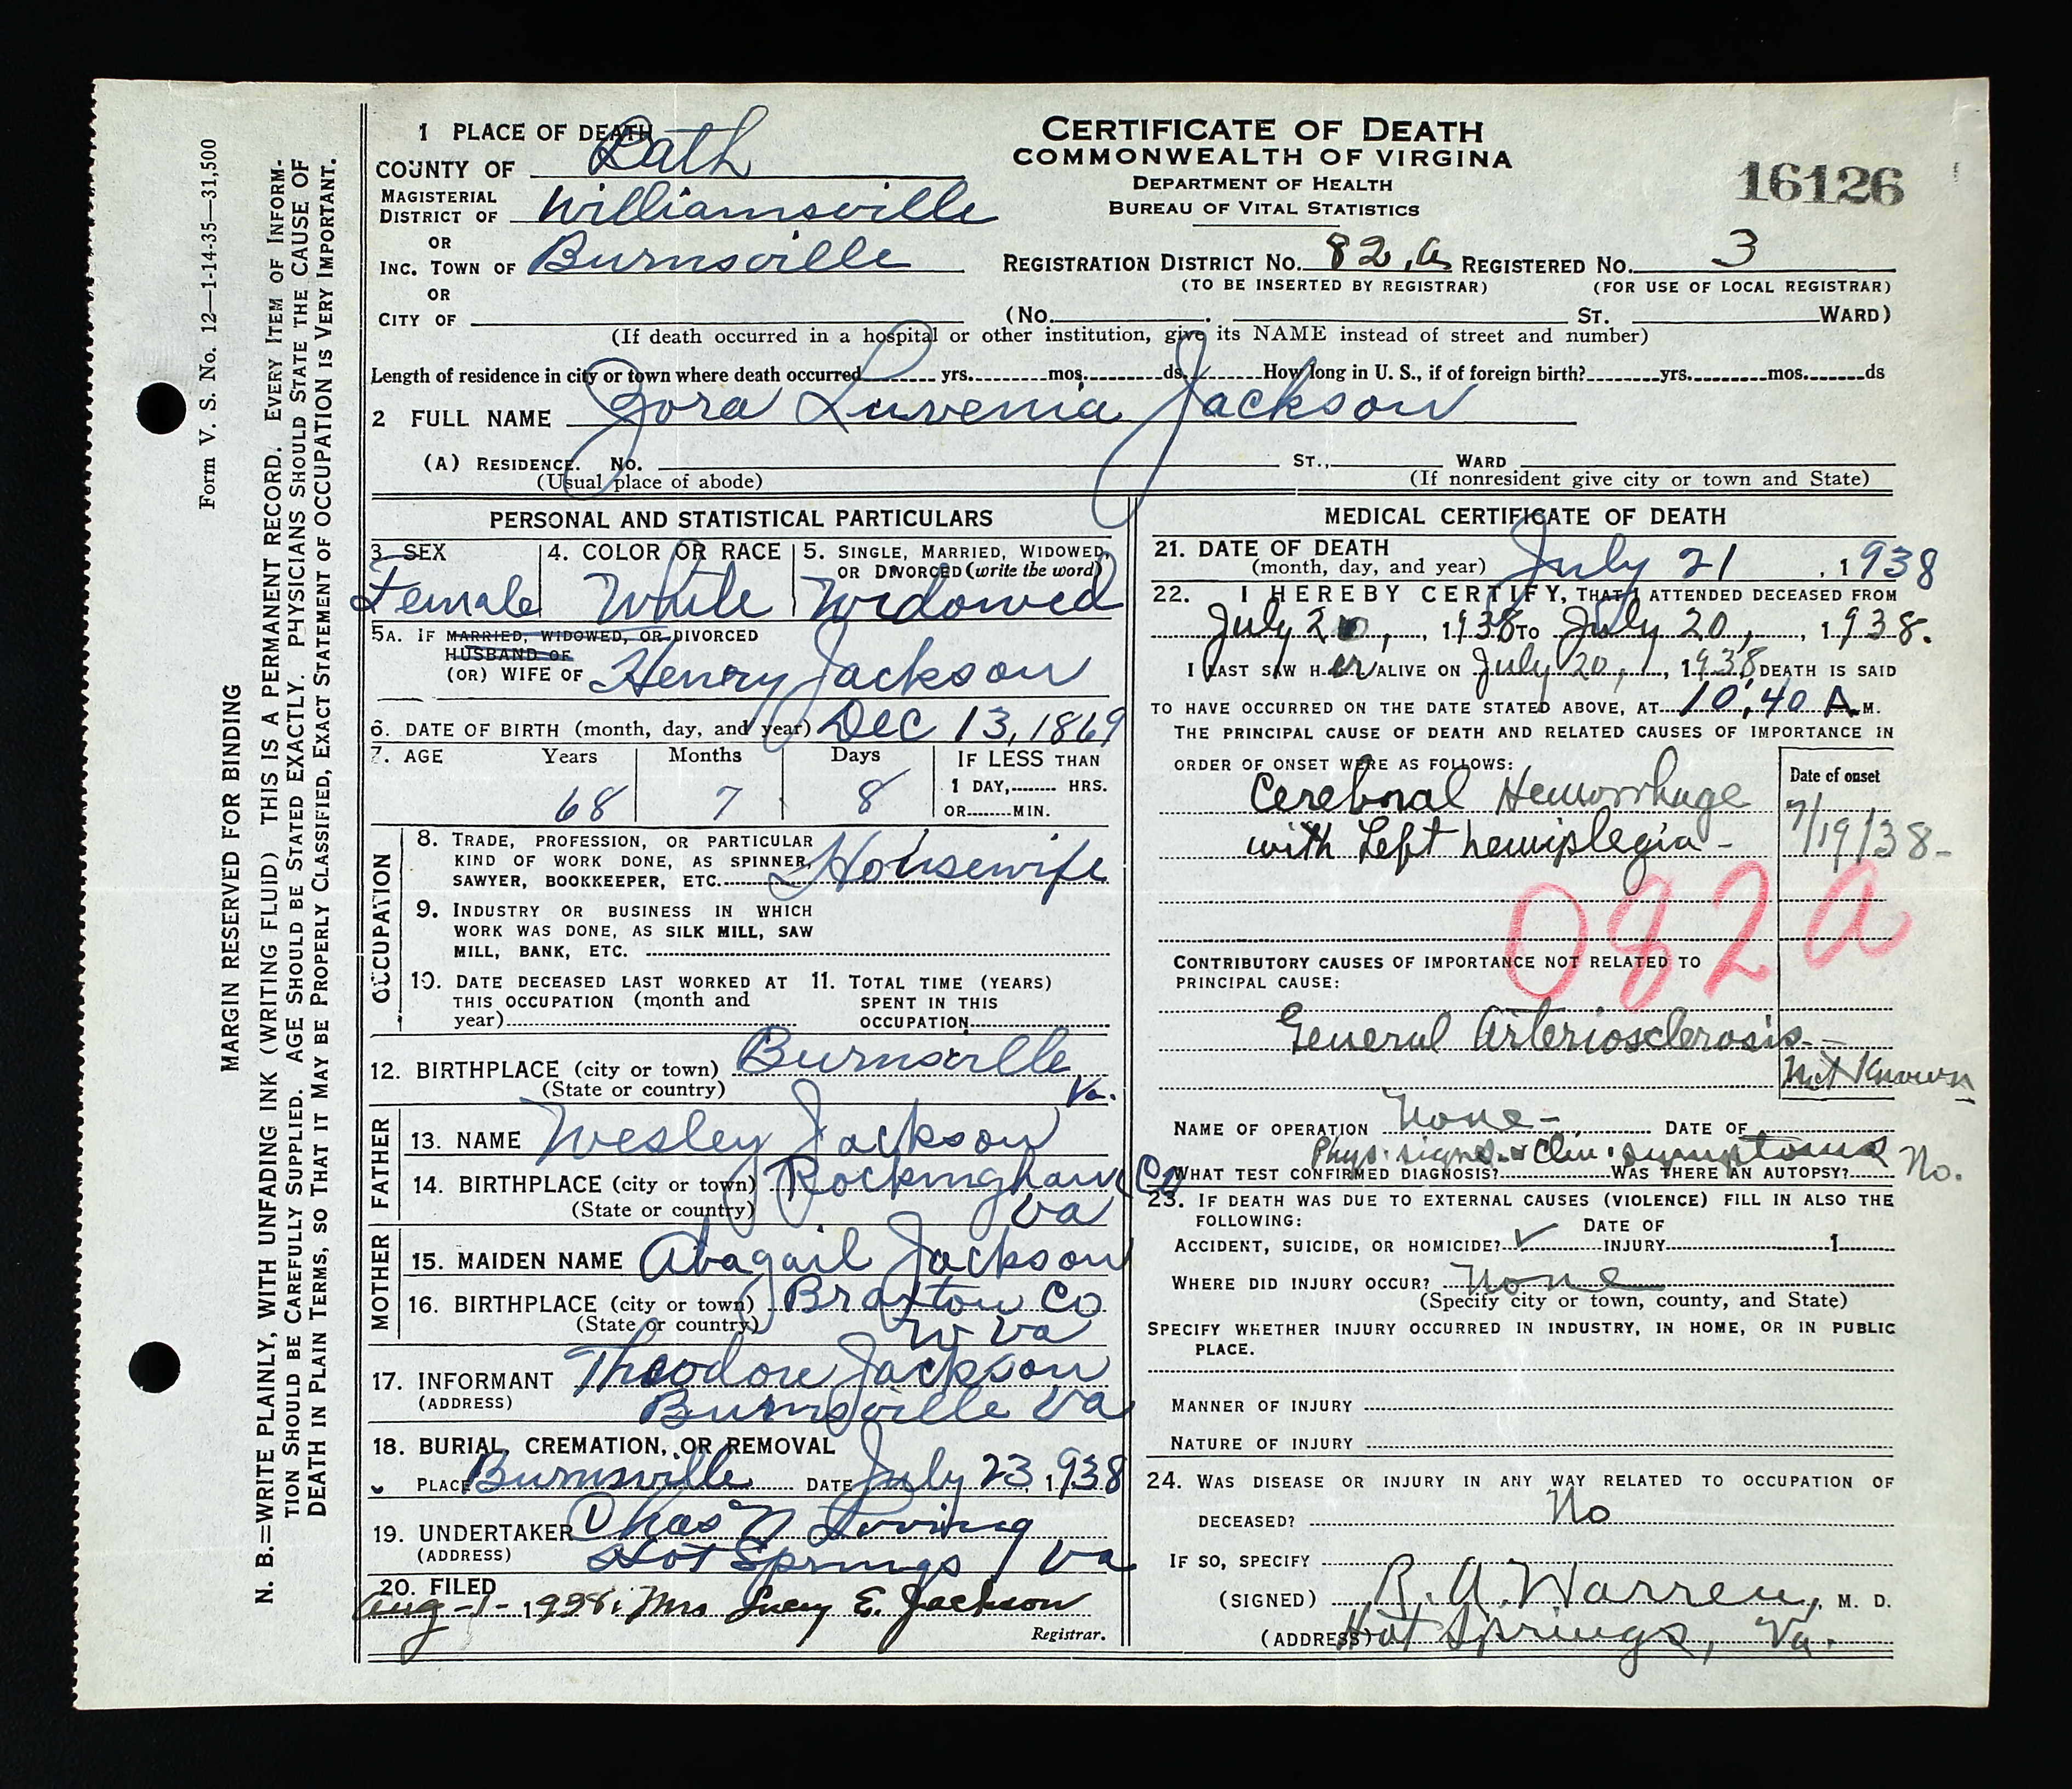 Form V. S. No. 12—1-14-35—31,500
MARGIN RESERVED FOR BINDING
N. B.=WRITE PLAINLY, WITH UNFADING INK (WRITING FLUID) THIS IS A PERMANENT RECORD. EVERY ITEM OF INFORM-
TION SHOULD BE CAREFULLY SUPPLIED. AGE SHOULD BE STATED EXACTLY. PHYSICIANS SHOULD STATE THE CAUSE OF
DEATH IN PLAIN TERMS, SO THAT IT MAY BE PROPERLY CLASSIFIED, EXACT STATEMENT OF OCCUPATION IS VERY IMPORTANT.
CERTIFICATE OF DEATH
COMMONWEALTH OF VIRGINA
DEPARTMENT OF HEALTH
BUREAU OF VITAL STATISTICS
16126
1 PLACE OF DEATH
COUNTY OF Bath
MAGISTERIAL
DISTRICT OF Williamsville
OR
INC. TOWN OF Burnsville
REGISTRATION DISTRICT NO. 82.a REGISTERED NO. 3
(TO BE INSERTED BY REGISTRAR) (FOR USE OF LOCAL REGISTRAR)
OR
CITY OF (NO. ST. WARD)
(If death occurred in a hospital or other institution, give its NAME instead of street and number)
Length of residence in city or town where death occurred yrs. mos. ds. How long in U. S., if of foreign birth? yrs. mos. ds
2 FULL NAME Zora Luvenia Jackson
(A) RESIDENCE. NO. ST., WARD
(Usual place of abode) (If nonresident give city or town and State)
PERSONAL AND STATISTICAL PARTICULARS
3. SEX 4. COLOR OR RACE 5. SINGLE, MARRIED, WIDOWED,
OR DIVORCED (write the word)
Female White Widowed
5A. IF MARRIED, WIDOWED, OR DIVORCED
HUSBAND OF
(OR) WIFE OF Henry Jackson
6. DATE OF BIRTH (month, day, and year) Dec 13, 1869
7. AGE Years Months Days IF LESS THAN
1 DAY, HRS.
OR MIN.
68 7 8
OCCUPATION
8. TRADE, PROFESSION, OR PARTICULAR
KIND OF WORK DONE, AS SPINNER,
SAWYER, BOOKKEEPER, ETC. Housewife
9. INDUSTRY OR BUSINESS IN WHICH
WORK WAS DONE, AS SILK MILL, SAW
MILL, BANK, ETC.
10. DATE DECEASED LAST WORKED AT
THIS OCCUPATION (month and
year)
11. TOTAL TIME (YEARS)
SPENT IN THIS
OCCUPATION
12. BIRTHPLACE (city or town) Burnsville
(State or country) Va.
FATHER
13. NAME Wesley Jackson
14. BIRTHPLACE (city or town) Rockingham Co
(State or country) Va
MOTHER
15. MAIDEN NAME Abagail Jackson
16. BIRTHPLACE (city or town) Braxton Co
(State or country) W Va
17. INFORMANT Theodore Jackson
(ADDRESS) Burnsville Va
18. BURIAL, CREMATION, OR REMOVAL
PLACE Burnsville DATE July 23, 1938
19. UNDERTAKER Chas N Loving
(ADDRESS) Hot Springs Va
20. FILED
Aug -1- 1938. Mrs Lucy E. Jackson
Registrar.
MEDICAL CERTIFICATE OF DEATH
21. DATE OF DEATH
(month, day, and year) July 21, 1938
22. I HEREBY CERTIFY, THAT I ATTENDED DECEASED FROM
July 20, 1938 TO July 20, 1938.
I LAST SAW HER ALIVE ON July 20, 1938, DEATH IS SAID
TO HAVE OCCURRED ON THE DATE STATED ABOVE, AT 10,40 A.M.
THE PRINCIPAL CAUSE OF DEATH AND RELATED CAUSES OF IMPORTANCE IN
ORDER OF ONSET WERE AS FOLLOWS:
Date of onset
Cerebral Hemorrhage
with Left hemiplegia - 7/19/38-
082 a
CONTRIBUTORY CAUSES OF IMPORTANCE NOT RELATED TO
PRINCIPAL CAUSE:
General Arteriosclerosis-
Not Known
NAME OF OPERATION None- DATE OF
Phys. signs. & Clin. symptoms
WHAT TEST CONFIRMED DIAGNOSIS? WAS THERE AN AUTOPSY? No.
23. IF DEATH WAS DUE TO EXTERNAL CAUSES (VIOLENCE) FILL IN ALSO THE
FOLLOWING:
DATE OF
ACCIDENT, SUICIDE, OR HOMICIDE? ✓ INJURY 1
WHERE DID INJURY OCCUR? None
(Specify city or town, county, and State)
SPECIFY WHETHER INJURY OCCURRED IN INDUSTRY, IN HOME, OR IN PUBLIC
PLACE.
MANNER OF INJURY
NATURE OF INJURY
24. WAS DISEASE OR INJURY IN ANY WAY RELATED TO OCCUPATION OF
DECEASED? No
IF SO, SPECIFY
(SIGNED) R. A. Warren, M. D.
(ADDRESS) Hot Springs, Va.